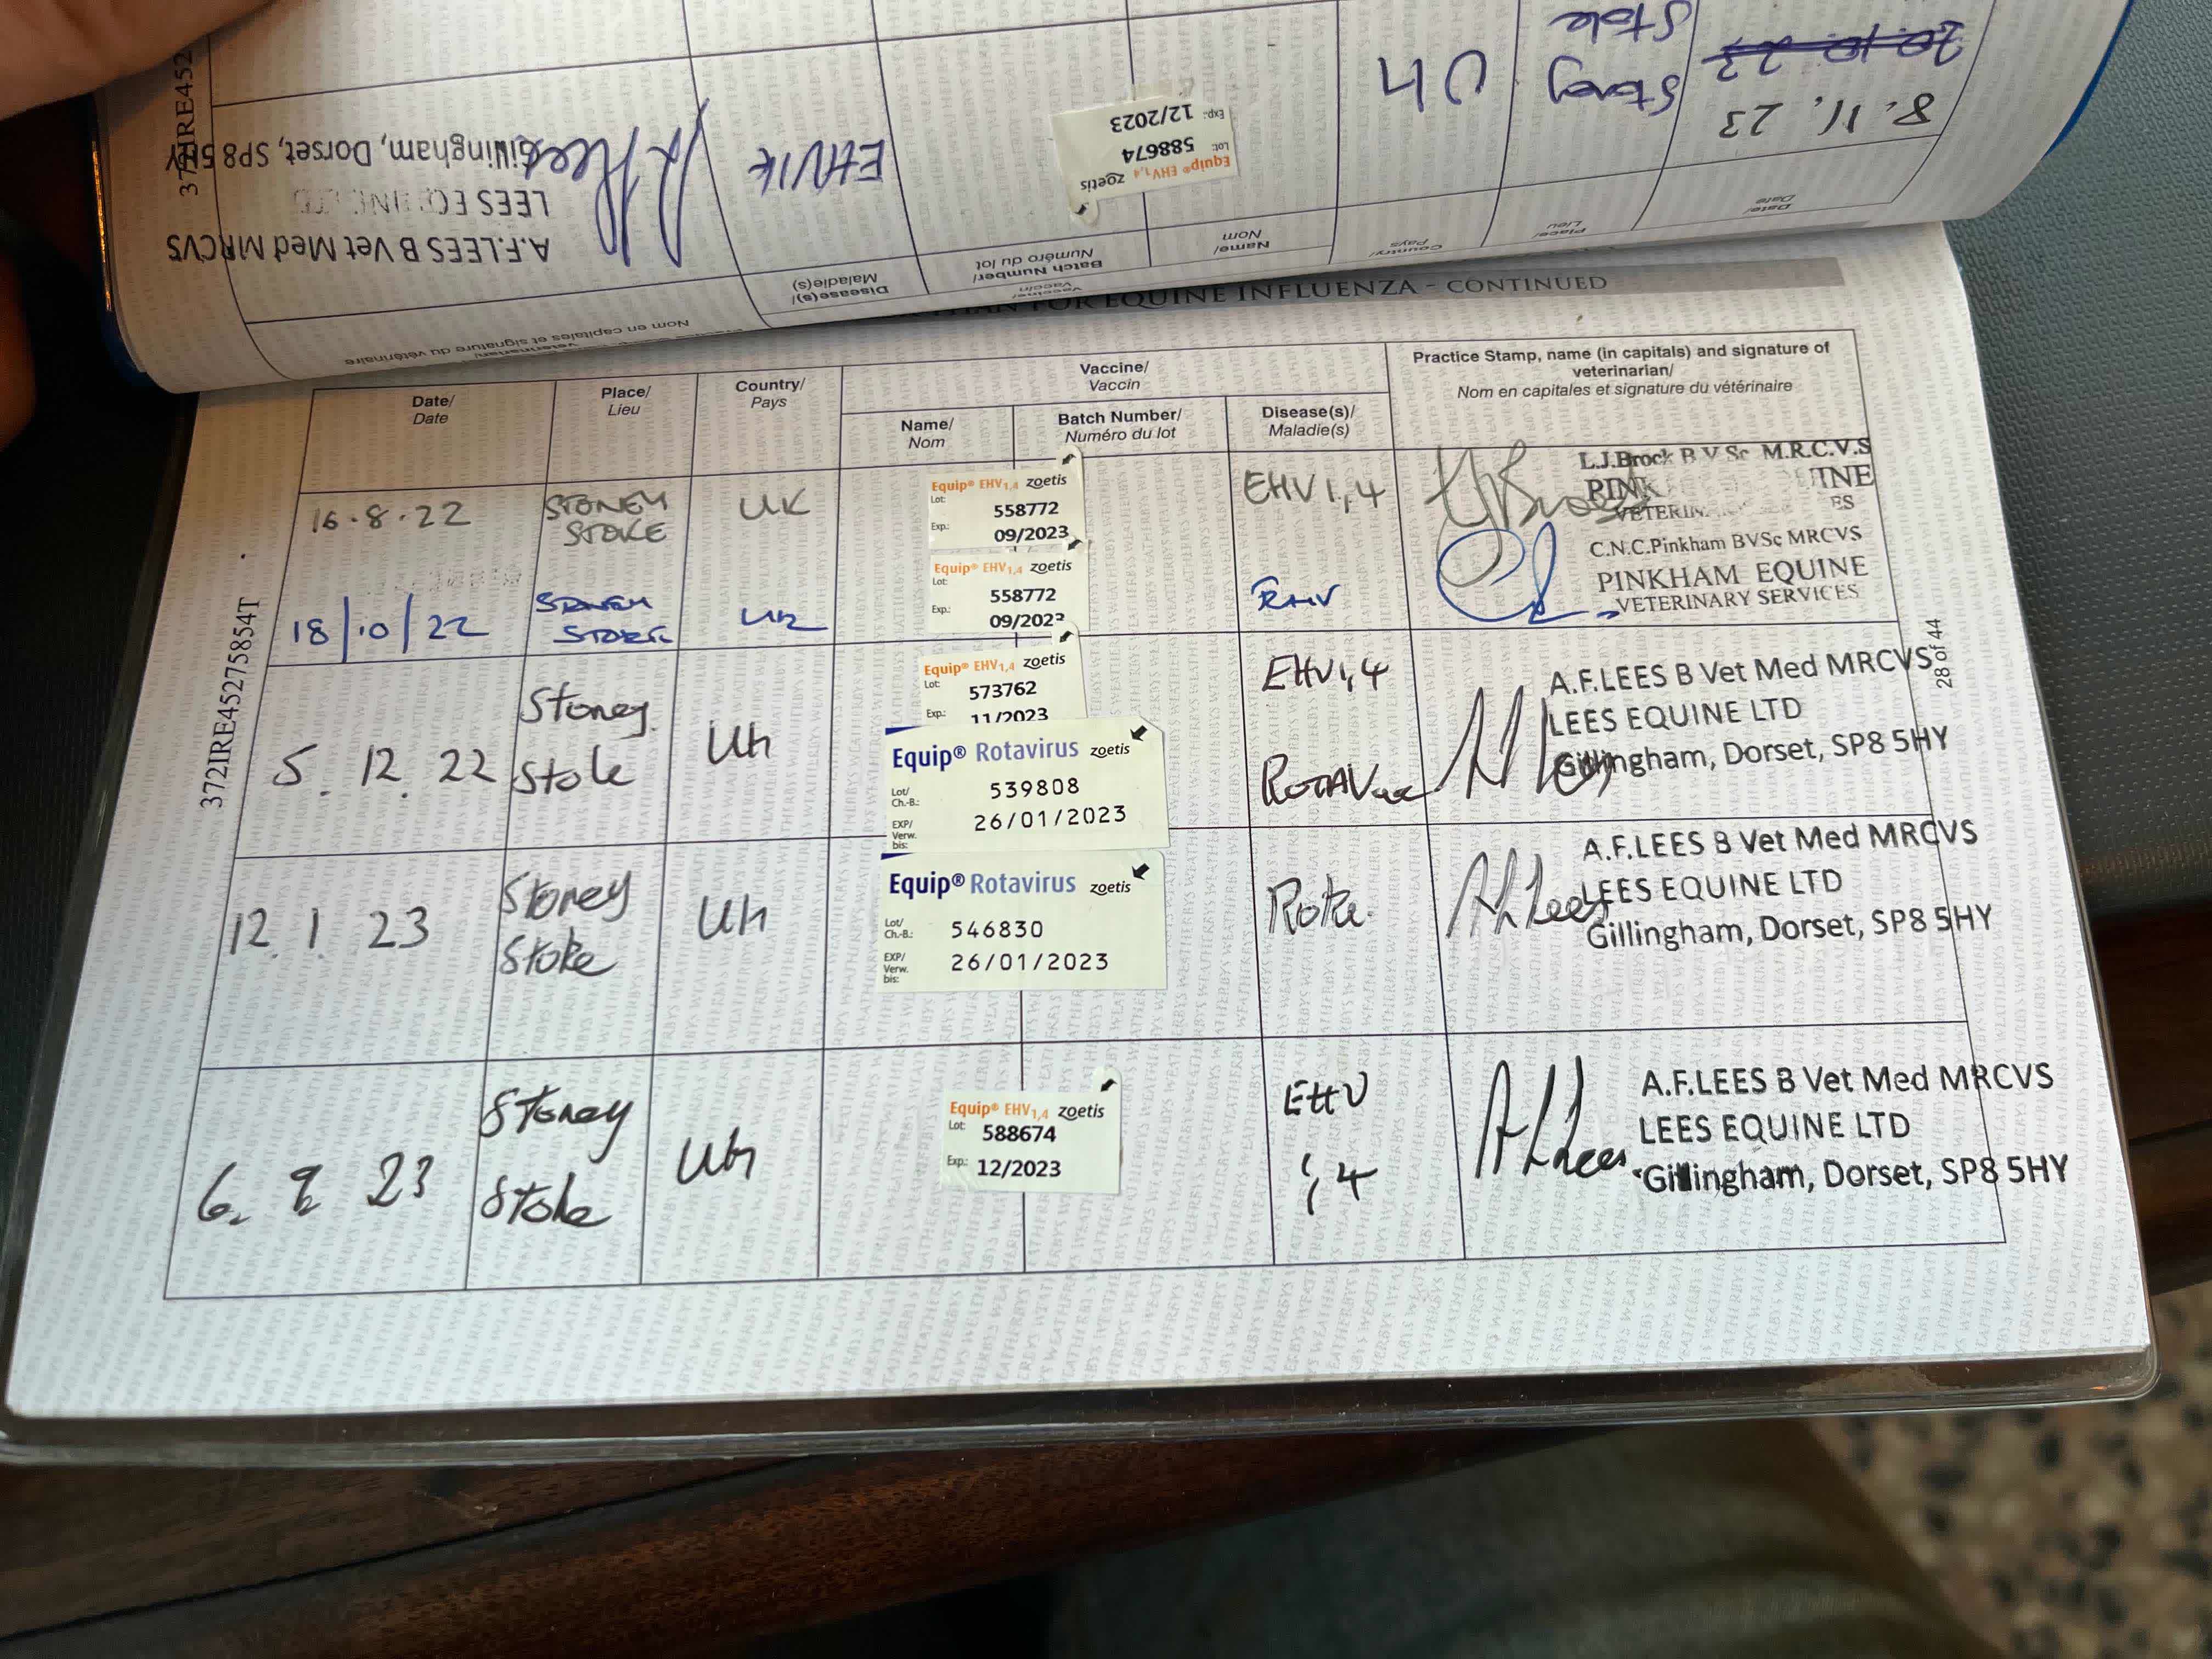 372IRE452
8. 11. 23
20.10.23
Stoney
Stoke
Uh
Equip® EHV1,4 zoetis
Lot: 588674
Exp.: 12/2023
EHV1,4
A.F.LEES B Vet Med MRCVS
LEES EQUINE LTD
Gillingham, Dorset, SP8 5HY
Date/
Date
Place/
Lieu
Country/
Pays
Name/
Nom
Vaccine/
Vaccin
Batch Number/
Numéro du lot
Disease(s)/
Maladie(s)
veterinarian/
Nom en capitales et signature du vétérinaire
THAN FOR EQUINE INFLUENZA - CONTINUED
Date/
Date
Place/
Lieu
Country/
Pays
Vaccine/
Vaccin
Name/
Nom
Batch Number/
Numéro du lot
Disease(s)/
Maladie(s)
Practice Stamp, name (in capitals) and signature of
veterinarian/
Nom en capitales et signature du vétérinaire
16.8.22
STONEY
STOKE
UK
Equip® EHV1,4 zoetis
Lot: 558772
Exp.: 09/2023
EHV 1,4
L.J.Brock B V Sc M.R.C.V.S
PINK INE
VETERIN ES
18/10/22
Uk
Equip® EHV1,4 zoetis
Lot: 558772
Exp.: 09/202
C.N.C.Pinkham BVSc MRCVS
PINKHAM EQUINE
VETERINARY SERVICES
5. 12. 22
Stoney
Stoke
Uh
Equip® EHV1,4 zoetis
Lot: 573762
Exp.: 11/2023
Equip® Rotavirus zoetis
Lot/
Ch.-B.: 539808
EXP/
Verw.
bis: 26/01/2023
EHV1,4
ROTAVac
A.F.LEES B Vet Med MRCVS
LEES EQUINE LTD
Gillingham, Dorset, SP8 5HY
12. 1 23
Stoney
Stoke
Uh
Equip® Rotavirus zoetis
Lot/
Ch.-B.: 546830
EXP/
Verw.
bis: 26/01/2023
Rota.
A F Lees
A.F.LEES B Vet Med MRCVS
LEES EQUINE LTD
Gillingham, Dorset, SP8 5HY
6. 9. 23
Stoney
Stoke
Uh
Equip® EHV1,4 zoetis
Lot: 588674
Exp.: 12/2023
EHV
1,4
A F Lees
A.F.LEES B Vet Med MRCVS
LEES EQUINE LTD
Gillingham, Dorset, SP8 5HY
372IRE45275854T
28 of 44